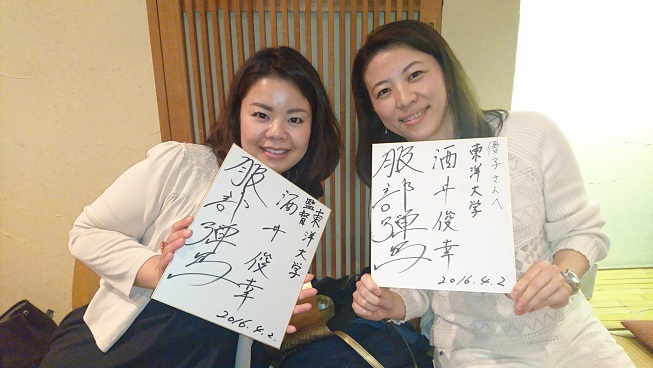 東洋大学
監督
酒井俊幸
服部弾馬
2016.4.2.
優子さんへ
東洋大学
酒井俊幸
服部弾馬
2016.4.2